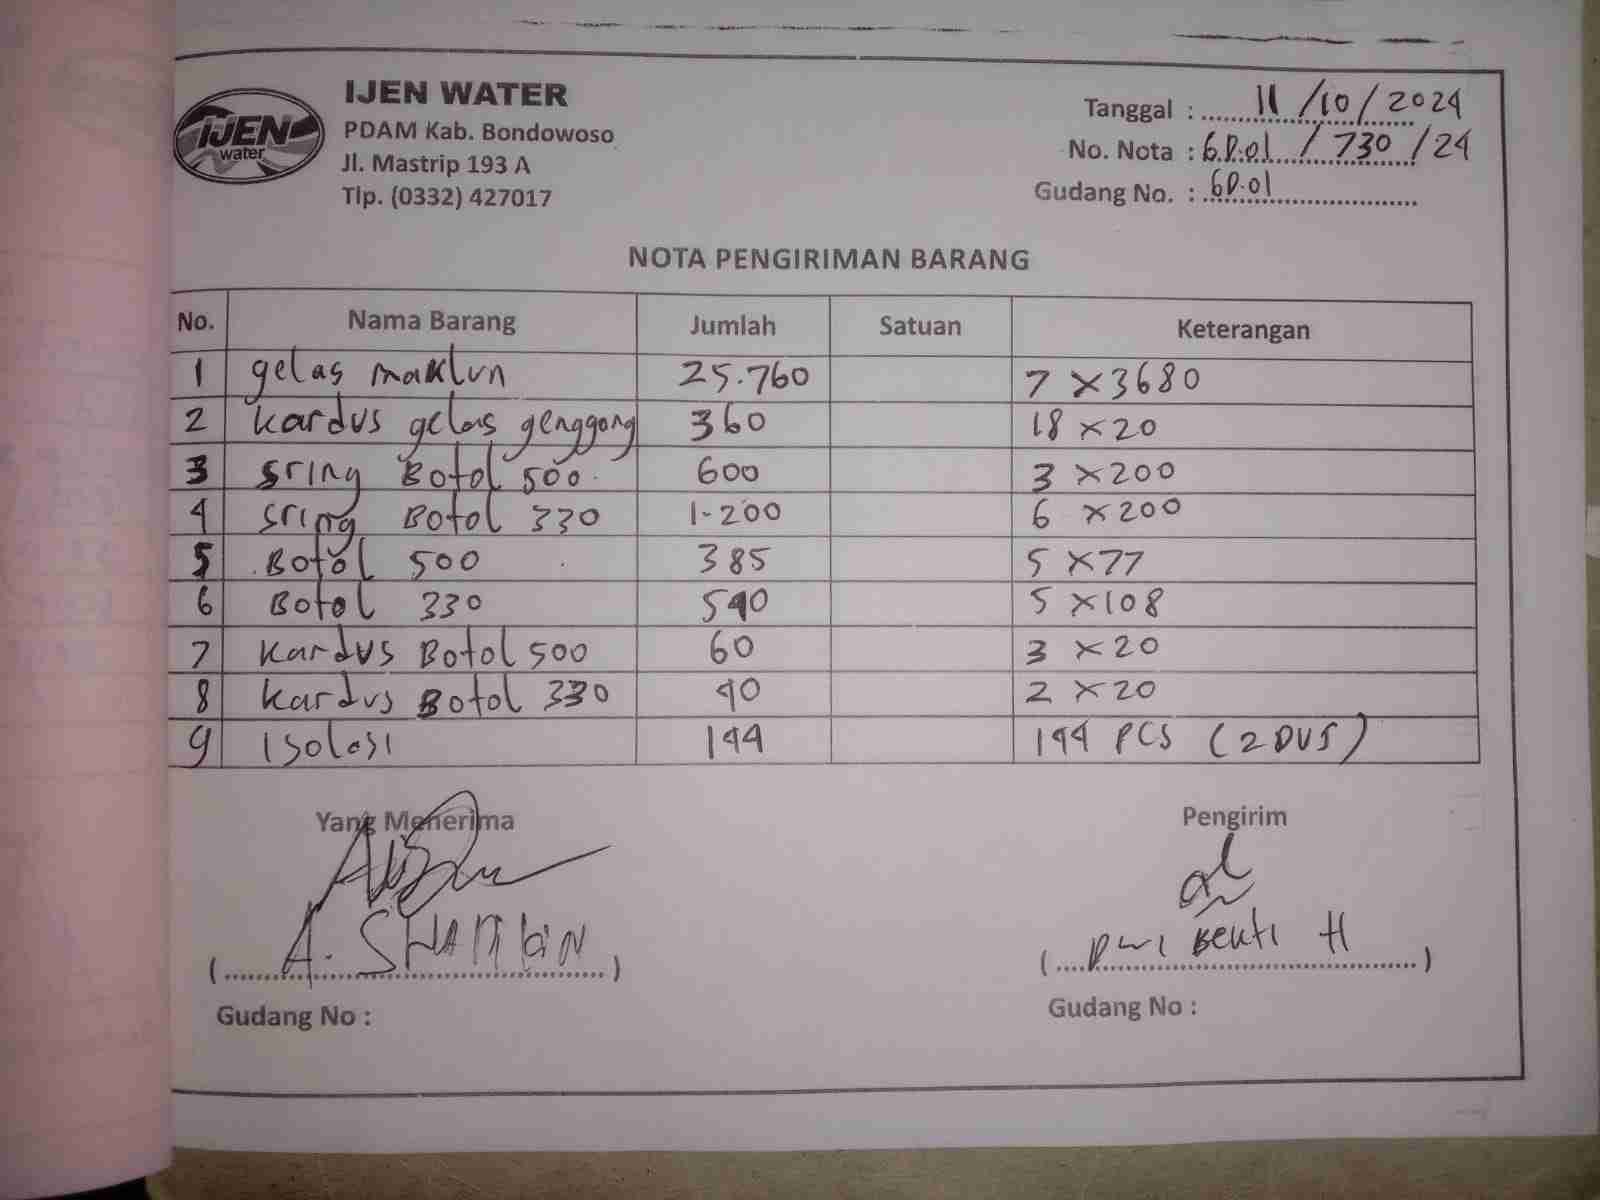 IJEN
water
IJEN WATER
PDAM Kab. Bondowoso
Jl. Mastrip 193 A
Tlp. (0332) 427017
Tanggal : 11 / 10 / 2024
No. Nota : 6D.01 / 730 / 24
Gudang No. : 6D.01
NOTA PENGIRIMAN BARANG
No. Nama Barang Jumlah Satuan Keterangan
1 gelas maklun 25.760 7 x 3680
2 Kardus gelas genggong 360 18 x 20
3 Sring Botol 500 600 3 x 200
4 Sring Botol 330 1.200 6 x 200
5 Botol 500 385 5 x 77
6 Botol 330 540 5 x 108
7 Kardus Botol 500 60 3 x 20
8 Kardus Botol 330 40 2 x 20
9 Isolasi 144 144 PCS (2 DUS)
Yang Menerima Pengirim
(A. ) (Dwi H)
Gudang No : Gudang No :